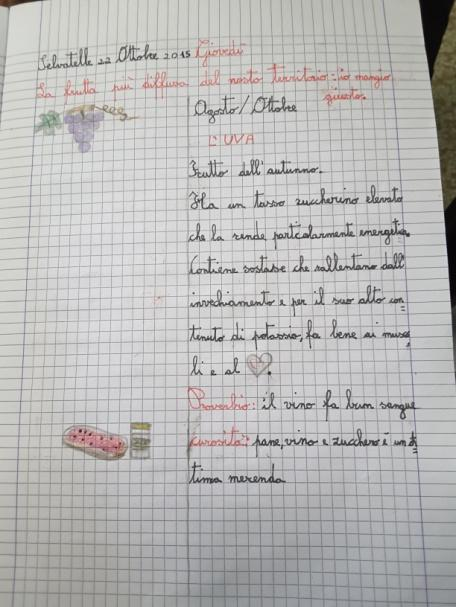 Selvatelle 22 Ottobre 2015 Giovedì
La frutta più diffusa del nosto territorio: io mangio
giusto.
Agosto/Ottobre
L'UVA
Frutto dell'autunno.
Ha un tasso zuccherino elevato
che la rende particolarmente energetica.
Contiene sostase che rallentano dall'
invechiamento e per il suo alto con
tenuto di potassio, fa bene ai musco
li e al
Proverbio: il vino fa buon sangue
curosità: pane, vino e zucchero è un ot
tima merenda